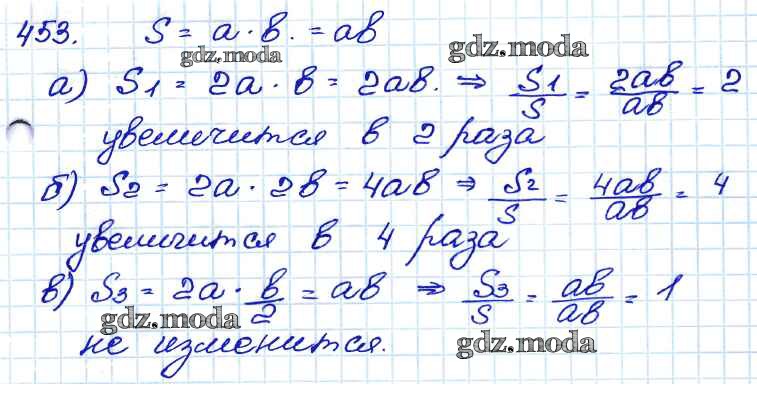 453. S = a · b. = ab
gdz.moda gdz.moda
а) S₁ = 2a · b = 2ab. ⇒ S₁/S = 2ab/ab = 2
увеличится в 2 раза
б) S₂ = 2a · 2b = 4ab ⇒ S₂/S = 4ab/ab = 4
увеличится в 4 раза
в) S₃ = 2a · b/2 = ab ⇒ S₃/S = ab/ab = 1
gdz.moda
не изменится.
gdz.moda